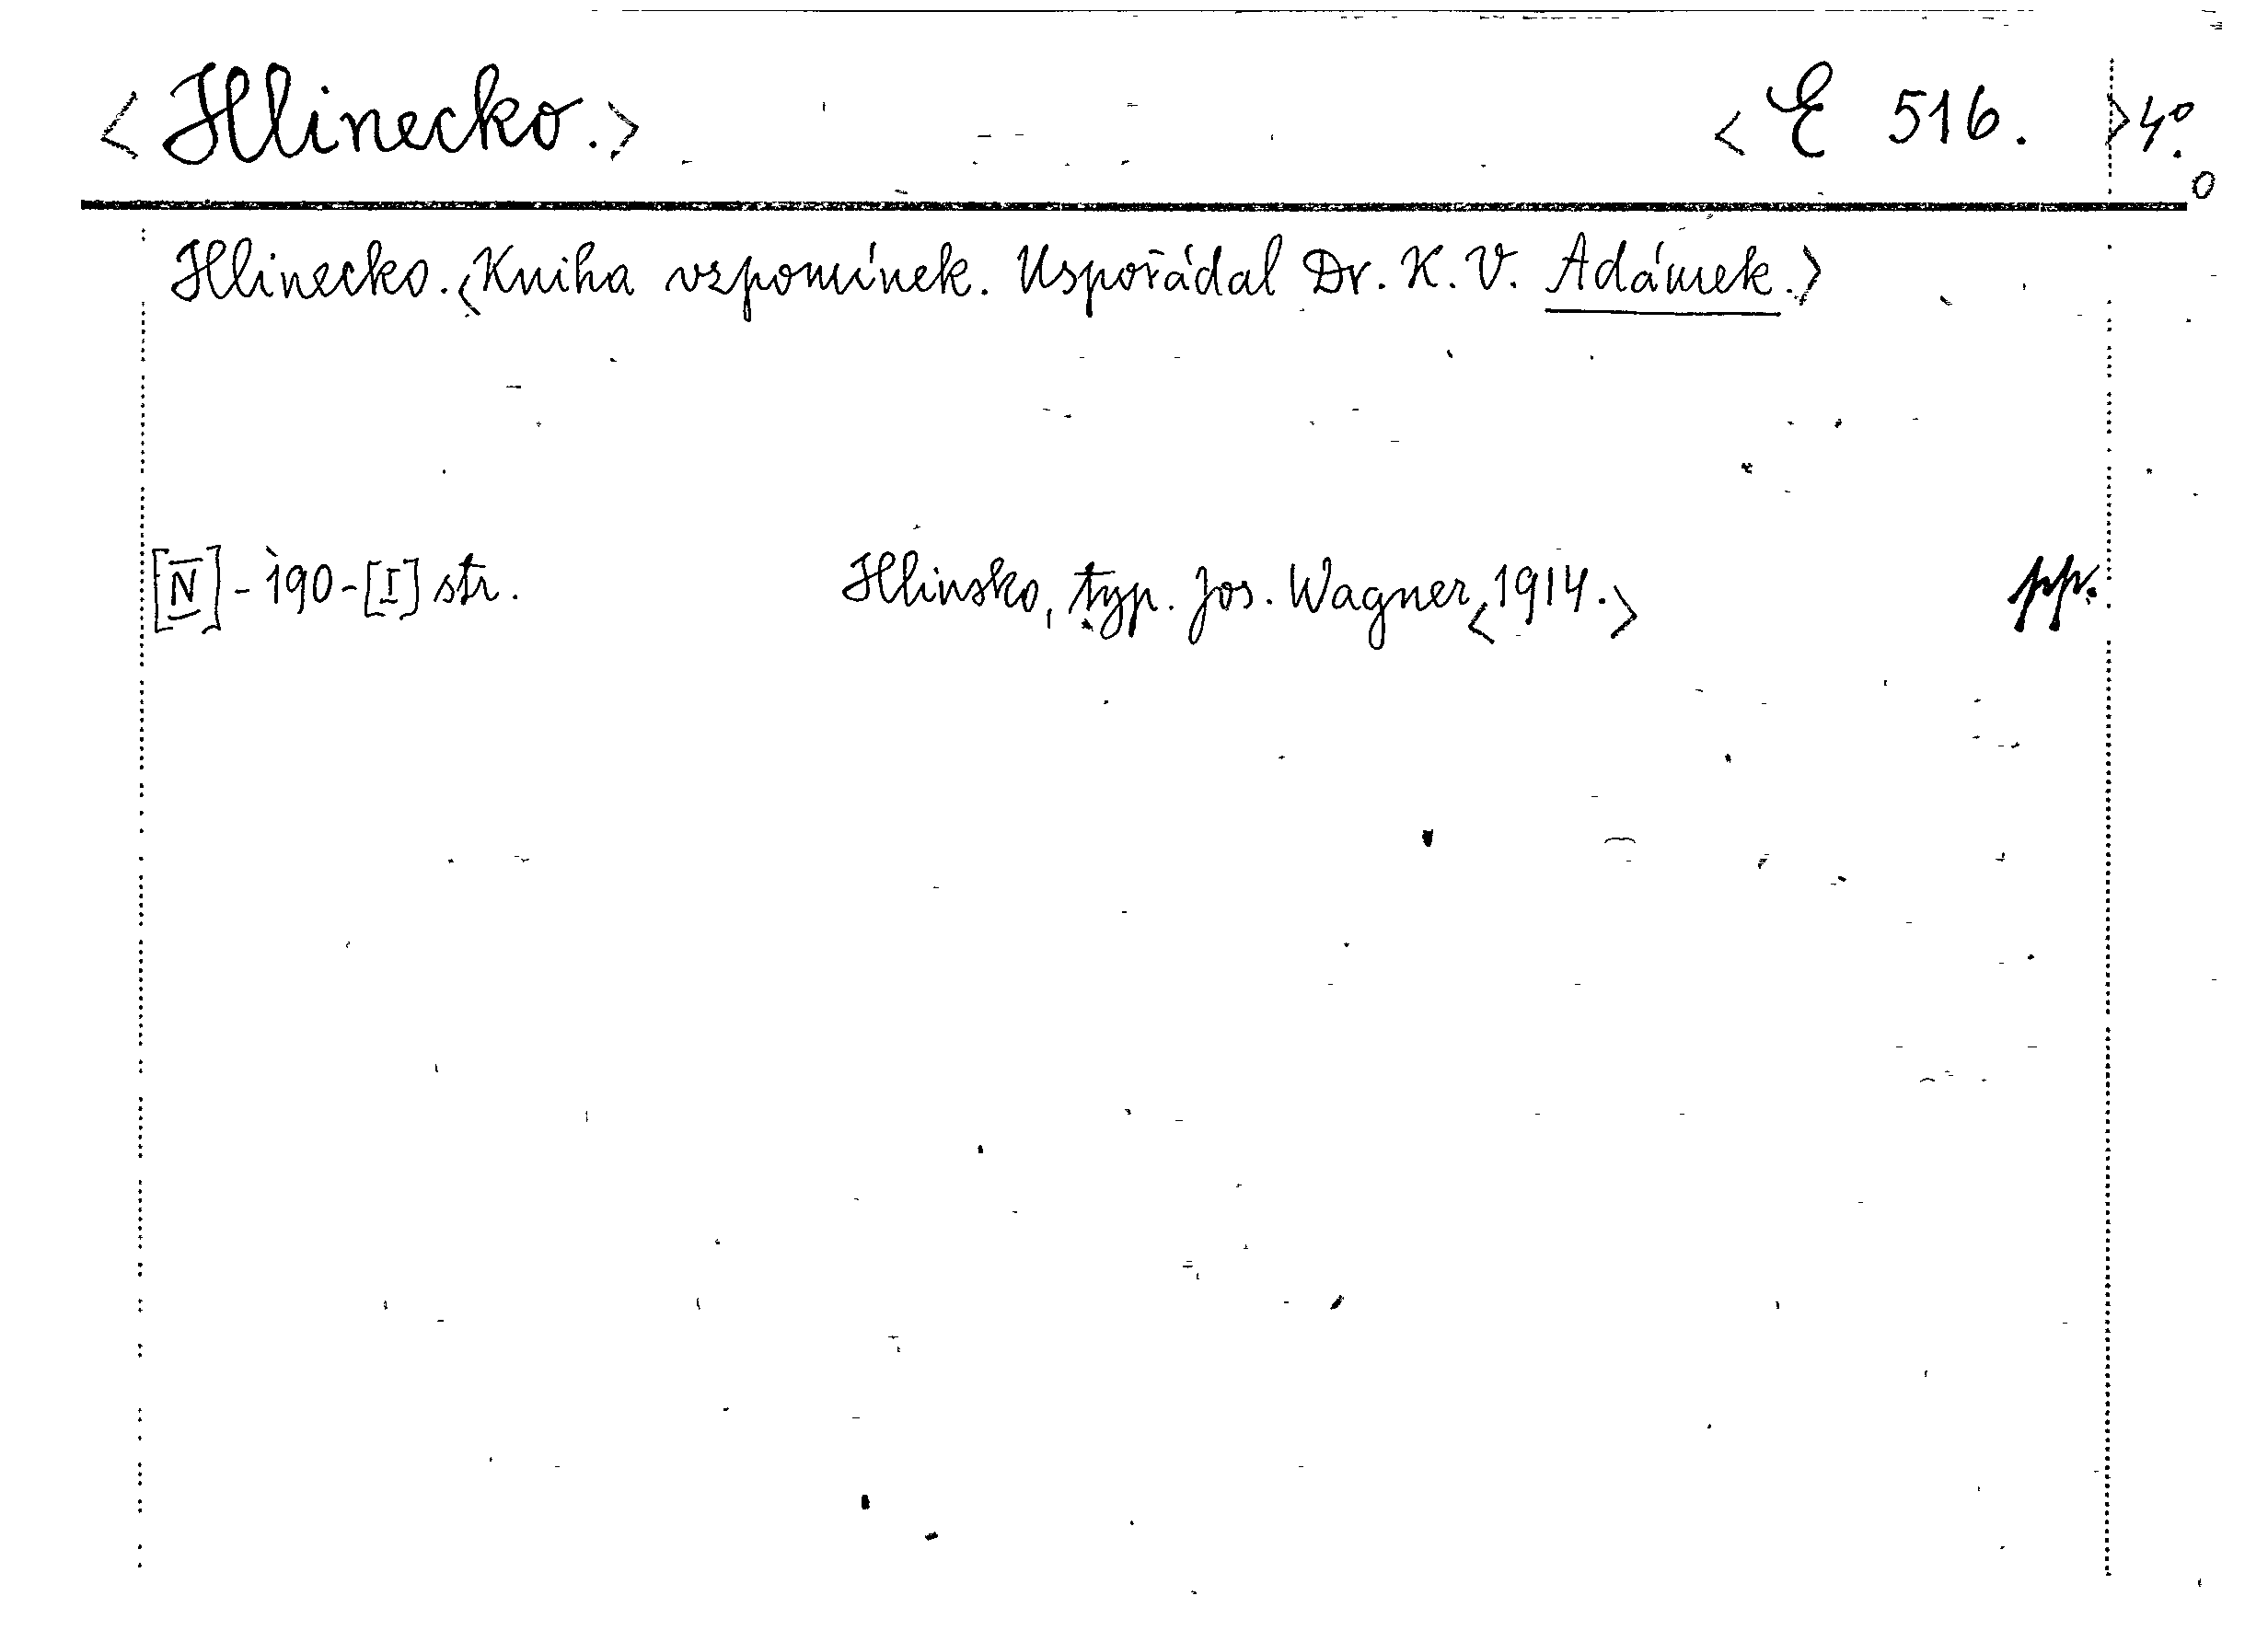 <Hlinecko.> <E 516. >4°.
Hlinecko.<Kniha vzpomínek. Uspořádal Dr. K. V. Adámek.>
[IV]-190-[I] str. Hlinsko, typ. Jos. Wagner<1914.> pp.